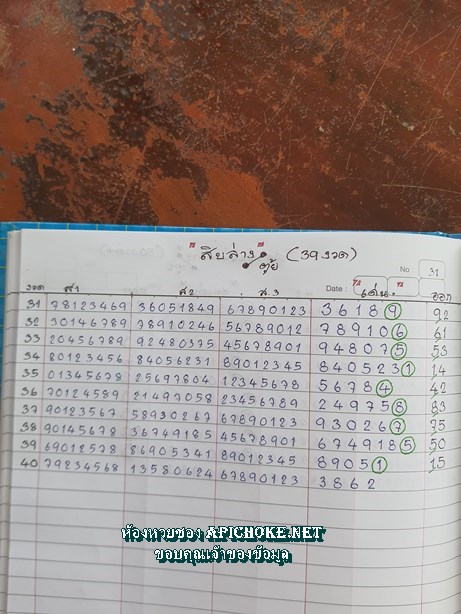 สิบล่าง (39 งวด)
ตุ้ย
No 31
Date :
งวด ส1 ส2 ส.3 เด่น ออก
31 78123469 36051849 67890123 36189 92
32 30146789 78910246 56789012 789106 61
33 20456789 92480375 45678901 948075 53
34 80123456 84056231 89012345 8405231 14
35 01345678 25697804 12345678 56784 42
36 70124589 21497058 23456789 249758 83
37 90123567 58930267 67890123 930267 75
38 90145678 36749185 45678901 6749185 50
39 69012578 86905341 89012345 89051 15
40 79234568 13580624 67890123 3862
ห้องหวยซอง APICHOKE.NET
ขอบคุณเจ้าของข้อมูล